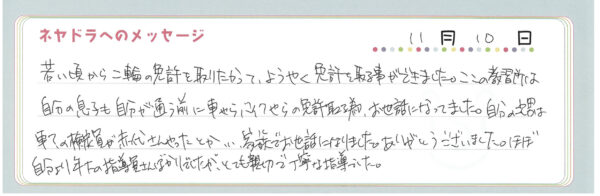 ネヤドラへのメッセージ
11月10日
若い頃から二輪の免許を取りたかって、ようやく免許を取る事ができました。ここの教習所は
自分の息子も自分が通う前に車やら、バイクやらの免許取る為、お世話になってました。自分の
車の
家族でお世話になりました。ありがとうございました。ほぼ
自分より年下の指導員さんばかりでしたが、とても親切で丁寧な指導でした。